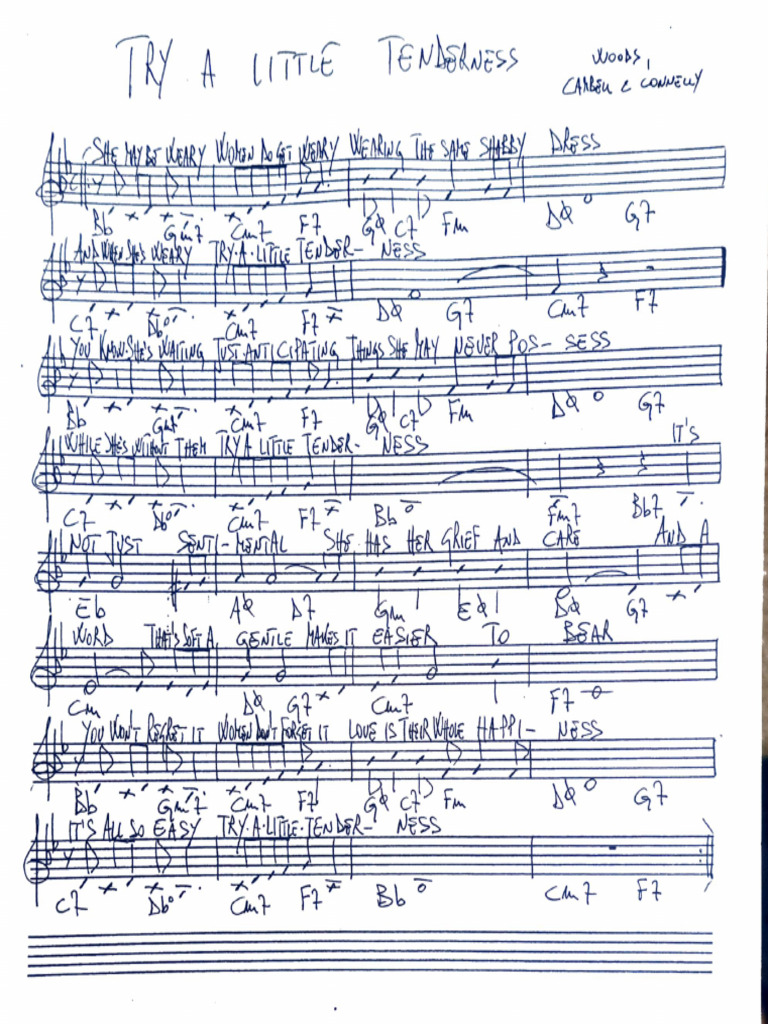 TRY A LITTLE TENDERNESS
WOODS,
CAMPBELL & CONNELLY
SHE MAY BE WEARY WOMEN DO GET WEARY WEARING THE SAME SHABBY DRESS
Bb Gm7 Cm7 F7 GØ C7 Fm DØ G7
AND WHEN SHE'S WEARY TRY·A·LITTLE TENDER– NESS
C7 Dbo Cm7 F7 DØ G7 Cm7 F7
YOU KNOW SHE'S WAITING JUST ANTICIPATING THINGS SHE MAY NEVER POS– SESS
Bb Gm7 Cm7 F7 GØ C7 Fm DØ G7
WHILE SHE'S WITHOUT THEM TRY A LITTLE TENDER– NESS IT'S
C7 Dbo Cm7 F7 Bb Fm7 Bb7
NOT JUST SENTI–MENTAL SHE HAS HER GRIEF AND CARE AND A
Eb AØ D7 Gm EØ DØ G7
WORD THAT'S SOFT A GENTLE MAKES IT EASIER TO BEAR
Cm DØ G7 Cm7 F7
YOU WON'T REGRET IT WOMEN DON'T FORGET IT LOVE IS THEIR WHOLE HAPPI– NESS
Bb Gm7 Cm7 F7 GØ C7 Fm DØ G7
IT'S ALL SO EASY TRY·A·LITTLE·TENDER– NESS
C7 Dbo Cm7 F7 Bb Cm7 F7